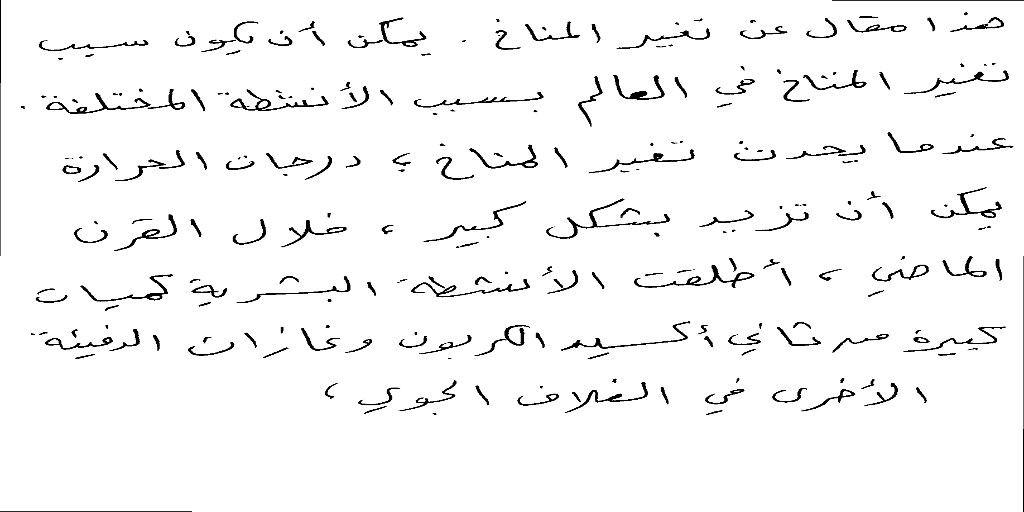 هذا مقال عن تغير المناخ . يمكن أن يكون سبب
تغير المناخ في العالم بسبب الأنشطة المختلفة .
عندما يحدث تغير المناخ ، درجات الحرارة
يمكن أن تزيد بشكل كبير ، خلال القرن
الماضي ، أطلقت الأنشطة البشرية كميات
كبيرة من ثاني أكسيد الكربون وغازات الدفيئة
الأخرى في الغلاف الجوي ،